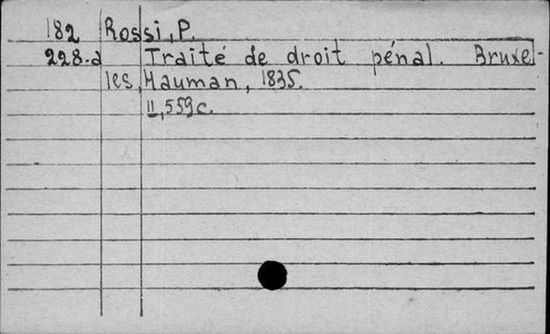 182 Rossi, P.
228-a Traité de droit pénal. Bruxel-
les, Hauman, 1835.
II, 559 c.